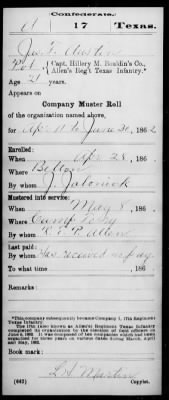 Confederate
A 17 Texas.
Jas. F. Austin
Pvt, Capt. Hillery M. Bouldin's Co.,
Allen's Reg't Texas Infantry.*
Age 21 years.
Appears on
Company Muster Roll
of the organization named above,
for Apr 11 to June 30, 1862
Enrolled:
When Apr 28, 186 .
Where Belton
By whom J.
Mustered into service:
When May 8, 186 .
Where Camp Terry
By whom R. T. P. Allen
Last paid:
By whom Has received no pay
To what time , 186 .
Remarks:
*This company subsequently became Company I, 17th Regiment
Texas Infantry.
The 17th (also known as Allen's) Regiment Texas Infantry
completed its organization by the election of field officers on
June 1862. It was composed of ten companies which had been
organized for three years on various dates during March, April
and May, 1862.
Book mark:
L A Martin
(642) Copyist.